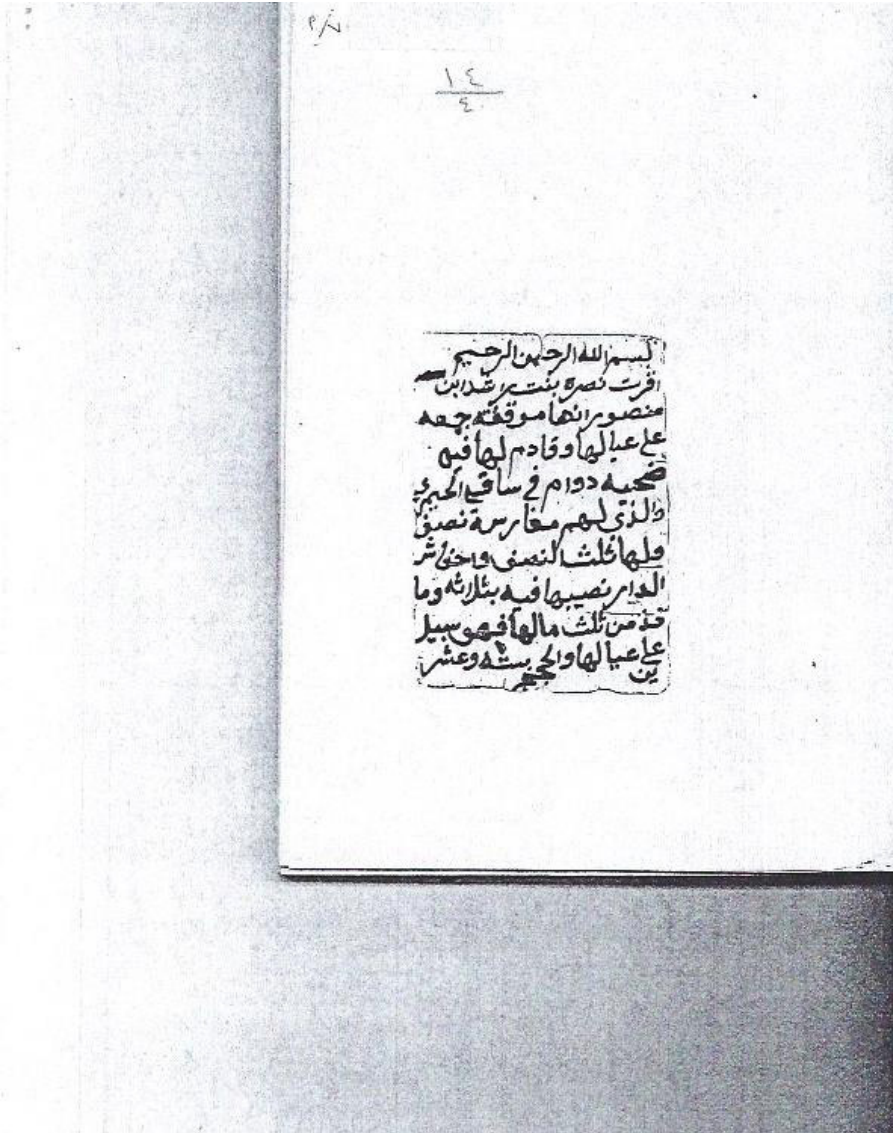 ١٤
٤
بسم الله الرحمن الرحيم
اقرت نصره بنت راشد ابن
منصور انها موقفته جهه
على عيالها وقادم لها فيه
ضحيه دوام في ساقي الحيري
والذي لهم مغارسة نصف
ولها ثلث النصف
الدار نصيبها فيه بثلاثه وما
قد من ثلث مالها فهو سبيل
على عيالها والحجج بسته وعشر
ين